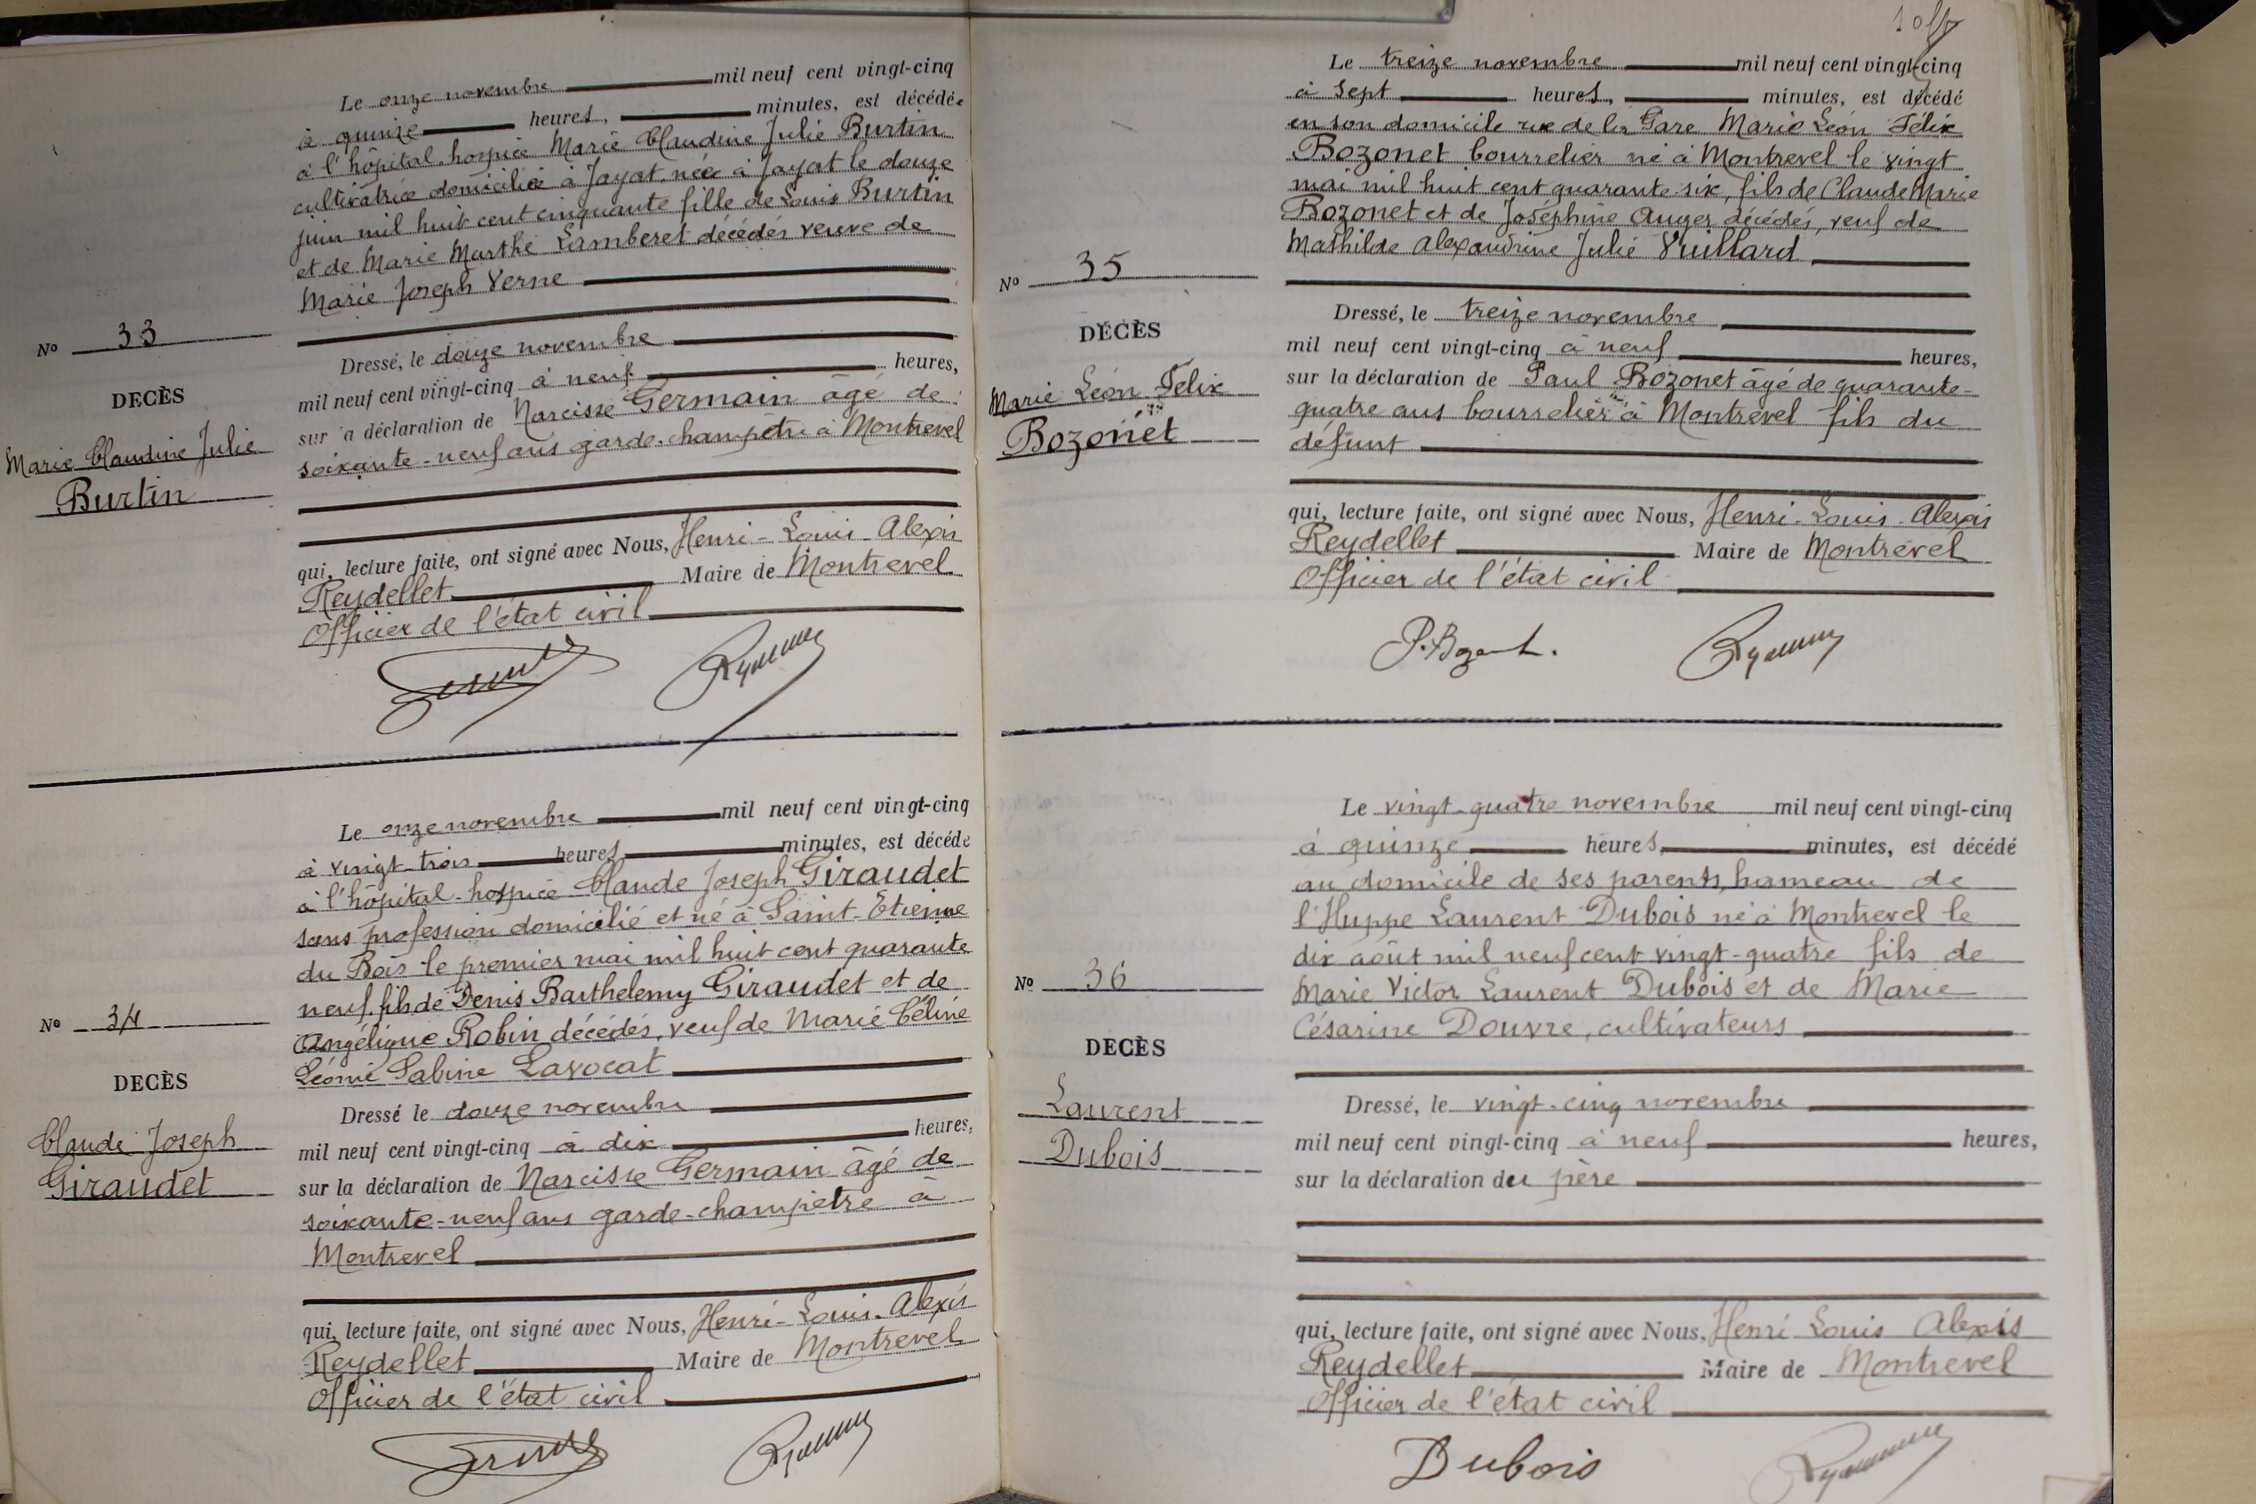 Le onze novembre mil neuf cent vingt-cinq
à quinze heures, minutes, est décédée
à l'hôpital-hospice Marie Claudine Julie Burtin
cultivatrice domiciliée à Jayat, née à Jayat le douze
juin mil huit cent cinquante fille de Louis Burtin
et de Marie Marthe Lamberet décédés veuve de
Marie Joseph Verne
No 33
DECÈS
Marie Claudine Julie
Burtin
Dressé, le douze novembre
mil neuf cent vingt-cinq à neuf heures,
sur a déclaration de Narcisse Germain âgé de
soixante-neuf ans garde-champêtre à Montrevel
qui, lecture faite, ont signé avec Nous, Henri-Louis-Alexis
Reydellet Maire de Montrevel
Officier de l'état civil
Le onze novembre mil neuf cent vingt-cinq
à vingt-trois heures minutes, est décédé
à l'hôpital-hospice Claude Joseph Giraudet
sans profession domicilié et né à Saint-Etienne
du Bois le premier mai mil huit cent quarante
neuf, fils de Denis Barthelemy Giraudet et de
Angélique Robin décédés, veuf de Marie Céline
Léonie Sabine Lavocat
No 34
DECÈS
Claude Joseph
Giraudet
Dressé le douze novembre
mil neuf cent vingt-cinq à dix heures,
sur la déclaration de Narcisse Germain âgé de
soixante-neuf ans garde-champêtre à
Montrevel
qui, lecture faite, ont signé avec Nous, Henri-Louis-Alexis
Reydellet Maire de Montrevel
Officier de l'état civil
Le treize novembre mil neuf cent vingt-cinq
à sept heures, minutes, est décédé
en son domicile rue de la Gare Marie Léon Félix
Bozonet bourrelier né à Montrevel le vingt
mai mil huit cent quarante-six, fils de Claude Marie
Bozonet et de Joséphine Auger décédés, veuf de
Mathilde Alexandrine Julie Vuillard
No 35
DECÈS
Marie Léon Félix
Bozonet
Dressé, le treize novembre
mil neuf cent vingt-cinq à neuf heures,
sur la déclaration de Paul Bozonet âgé de quarante-
quatre ans bourrelier à Montrevel fils du
défunt
qui, lecture faite, ont signé avec Nous, Henri-Louis-Alexis
Reydellet Maire de Montrevel
Officier de l'état civil
P. Bozonet.
Le vingt-quatre novembre mil neuf cent vingt-cinq
à quinze heures, minutes, est décédé
au domicile de ses parents, hameau de
l'Huppe Laurent Dubois né à Montrevel le
dix août mil neuf cent vingt-quatre fils de
Marie Victor Laurent Dubois et de Marie
Césarine Douvre, cultivateurs
No 36
DECÈS
Laurent
Dubois
Dressé, le vingt-cinq novembre
mil neuf cent vingt-cinq à neuf heures,
sur la déclaration du père
qui, lecture faite, ont signé avec Nous, Henri Louis Alexis
Reydellet Maire de Montrevel
Officier de l'état civil
Dubois